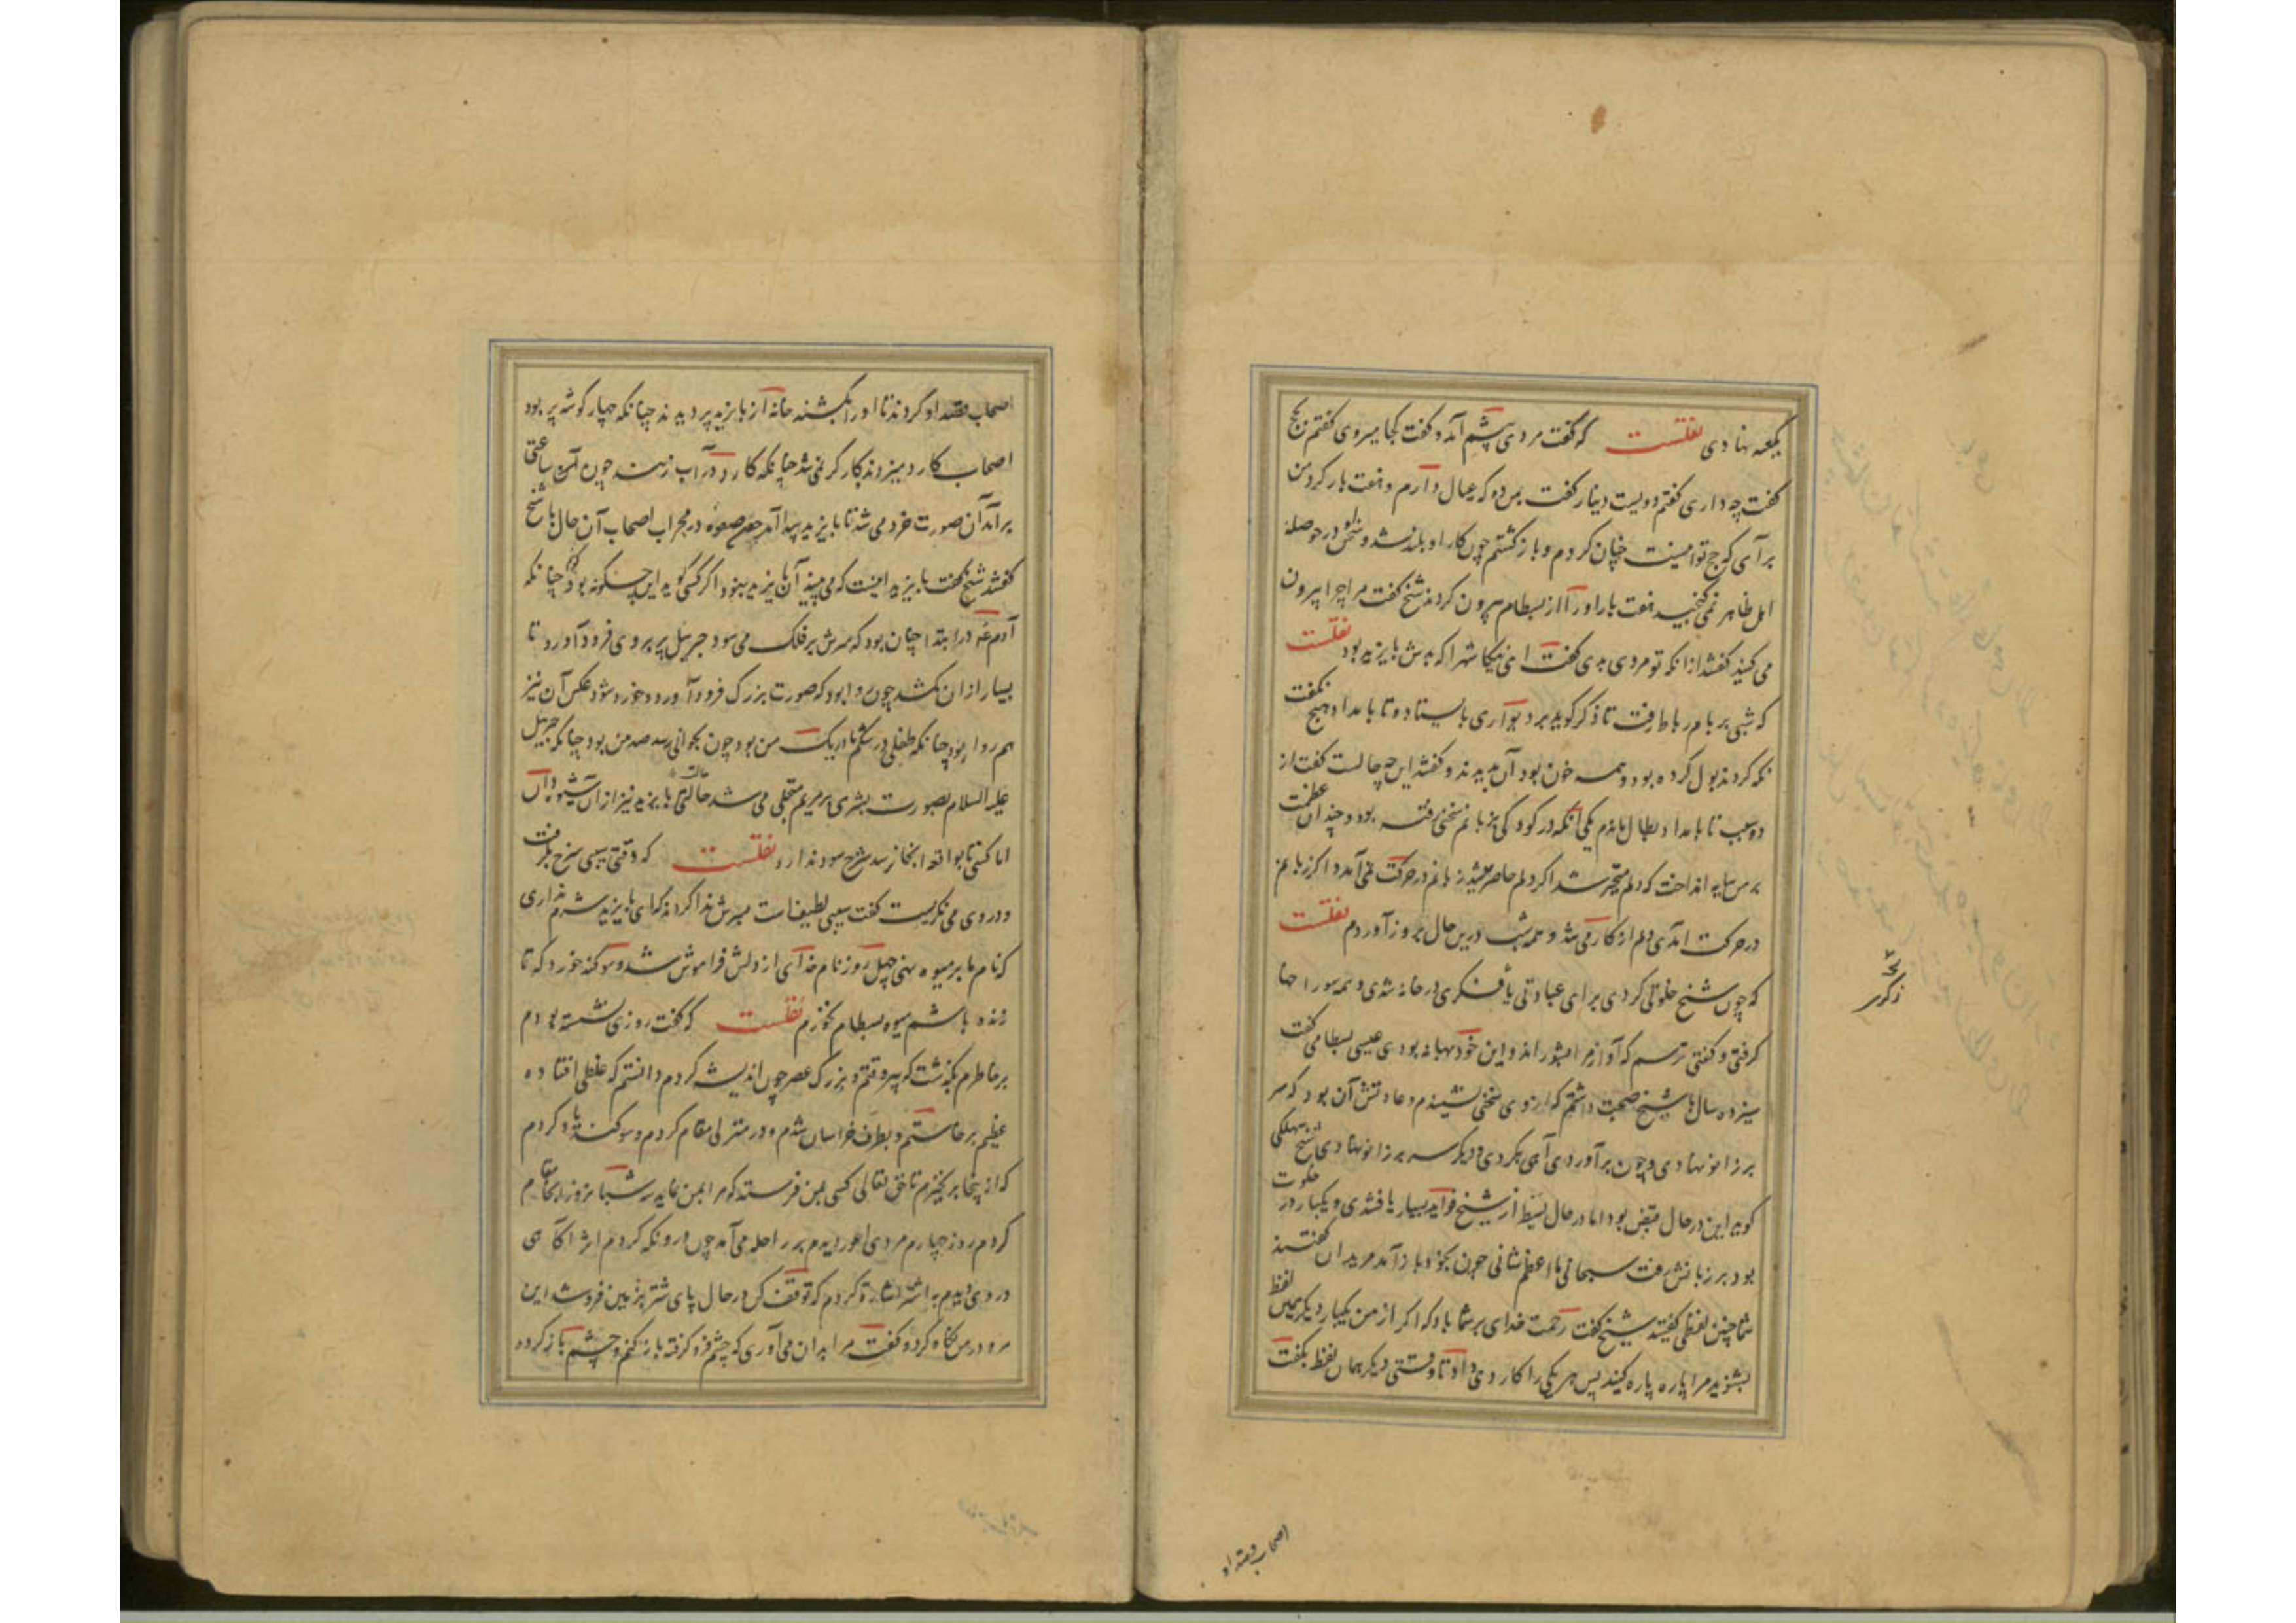 بکعبه نهادی نقلست که گفت مردی پیشم آمد و گفت کجا میروی گفتم بحج
گفت چه داری گفتم دویست دینار گفت بمن ده که عیال دارم و هفت بار کرد من
برآی که حج تو اینست چنان کردم و بازگشتم چون کار او بلند شد و سخن او در حوصله
اهل ظاهر نمی گنجید هفت بار او را از بسطام بیرون کردند شیخ گفت مرا چرا بیرون
می کنید گفتند از آنکه تو مردی بدی گفت ای نیکا شهرا که بدش بایزید بود نقلست
که شبی بر بام رباط رفت تا ذکر گوید بر دیواری بایستاد و تا بامداد هیچ نگفت
نگه کردند بول کرده بود و همه خون بود آن بدیدند و گفتند این چه حالست گفت از
دو سبب تا بامداد بطال ماندم یکی آنکه در کودکی بر زبانم سخنی رفته بود و چندان عظمت
بر من سایه انداخت که دلم متحیر شد اگر دلم حاضر میشد زبانم در حرکت نمی آمد و اگر زبانم
در حرکت آمدی دلم از کار می شد و همه شب درین حال بروز آوردم نقلست
که چون شیخ خلوتی کردی برای عبادتی یا فکری در خانه شدی و همه سوراخها
گرفتی و گفتی ترسم که آوازی مرا بشوراند و این خود بهانه بودی عیسی بسطامی گفت
سیزده سال با شیخ صحبت داشتم که از وی سخنی نشنیدم و عادتش آن بود که سر
بر زانو نهادی و چون برآوردی آهی بکردی و دیگر سر بر زانو نهادی شیخ سهلکی
گوید این در حال قبض بود اما در حال بسط از شیخ فواید بسیار یافتندی و یکبار در خلوت
بود بر زبانش رفت سبحانی ما اعظم شانی چون بخود باز آمد مریدان گفتند
شما چنین لفظی گفتید شیخ گفت رحمت خدای بر شما باد که اگر از من یکبار دیگر همین لفظ
بشنوید مرا پاره پاره کنید پس هر یکی را کاردی داد تا وقتی دیگر همان لفظ بگفت
اصحاب قصد او
اصحاب قصد او کردند تا او را بکشند خانه از بایزید پر دیدند چنانکه چهار گوشه پر بود
اصحاب کارد میزدند کارگر نمی شد چنانکه کارد در آب زنند چون آن ساعتی
برآمد آن صورت خرد می شد تا بایزید پیدا آمد چون صعوه در محراب اصحاب آن حال با شیخ
گفتند شیخ گفت بایزید اینست که می بینید آن بایزید نبود اگر کسی گوید این چگونه بود گوییم چنانکه
آدم ع در ابتدا چنان بود که سرش بر فلک می سود جبریل پر بر وی فرود آورد تا
بسیار از آن بکشد چون روا بود که صورت بزرگ فرود آورد و خورد شود عکس آن نیز
هم روا بود چنانکه طفلی در شکم مادر یک من بود چون بجوانی رسد صد من بود چنانکه جبریل
علیه السلام بصورت بشری بر مریم متجلی می شد حالت بایزید نیز از آن شیوه دان
اما کسی تا بواقعه آنجا نرسد شرح سود ندارد نقلست که وقتی سیبی سرخ برگرفت
و در وی می نگریست گفت سیبی لطیفست بسرش ندا کردند که ای بایزید شرم نداری
که نام ما بر میوه نهی چهل روز نام خدای از دلش فراموش شد و سوگند خورد که تا
زنده باشم میوه بسطام نخورم نقلست که گفت روزی نشسته بودم
بر خاطرم بگذشت که پیر وقتم و بزرگ عصر چون اندیشه کردم دانستم که غلطی افتاده
عظیم برخاستم و بطرف خراسان شدم و در منزلی مقام کردم و سوگند یاد کردم
که از اینجا برنخیزم تا حق تعالی کسی بمن فرستد که مرا بمن نماید سه شبانروز آنجا مقام
کردم روز چهارم مردی اعور دیدم بر راحله می آمد چون درو نگه کردم اثر آگاهی
در وی دیدم به اشتر اشاره کردم که توقف کن در حال پای شتر بزمین فروشد این
مرد در من نگاه کرد و گفت مرا بدان می آوری که چشم فرو گرفته باز کنم و چشم باز کرده